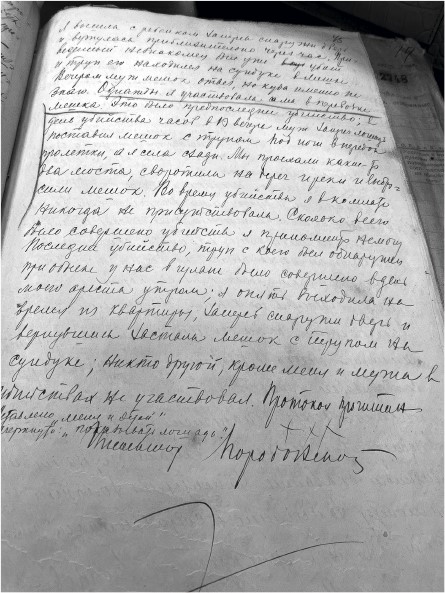 я вышла с ребенком заперев снаружи дверь
и вернулась приблизительно через час. При-
веденный незнакомец был уже убит
и труп его находился на сундуке в мешке
Вечером муж мешок отвез, но куда именно не
знаю. Однажды я участвовала сама в перевозке
мешка. Это было предпоследнее убийство; в
день убийства часов в 8 вечера муж запряг лошадь
поставил мешок с трупом под ноги в передок
пролетки, а я села сзади. Мы проехали какие-то
два моста, своротили на берег и реки и выбро-
сили мешок. Во время убийства я в комнате
никогда не присутствовала. Сколько всего
было совершено убийств я припомнить не могу
Последнее убийство, труп с коего был обнаружен
при обыске у нас в чулане было совершено в день
моего ареста утром; я опять выходила на
время из квартиры, заперев снаружи дверь и
вернувшись застала мешок с трупом на
сундуке; никто другой, кроме меня и мужа в
убийствах не участвовал. Протокол прочитан
"меня и
+ X X